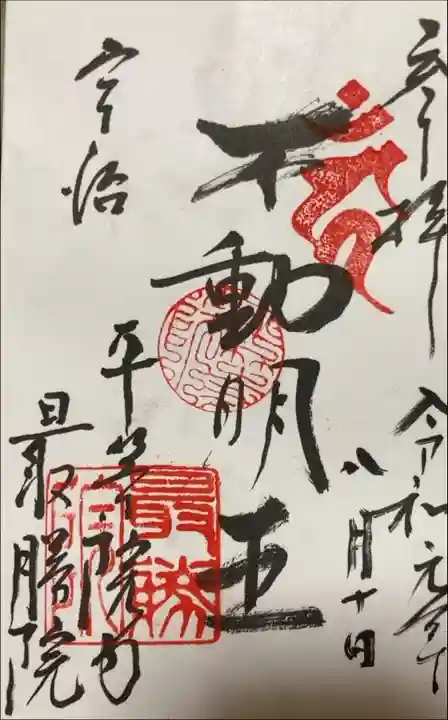 奉拝 令和元年
八月十日
不動明王
宇治
平等院内
最勝院
最勝院